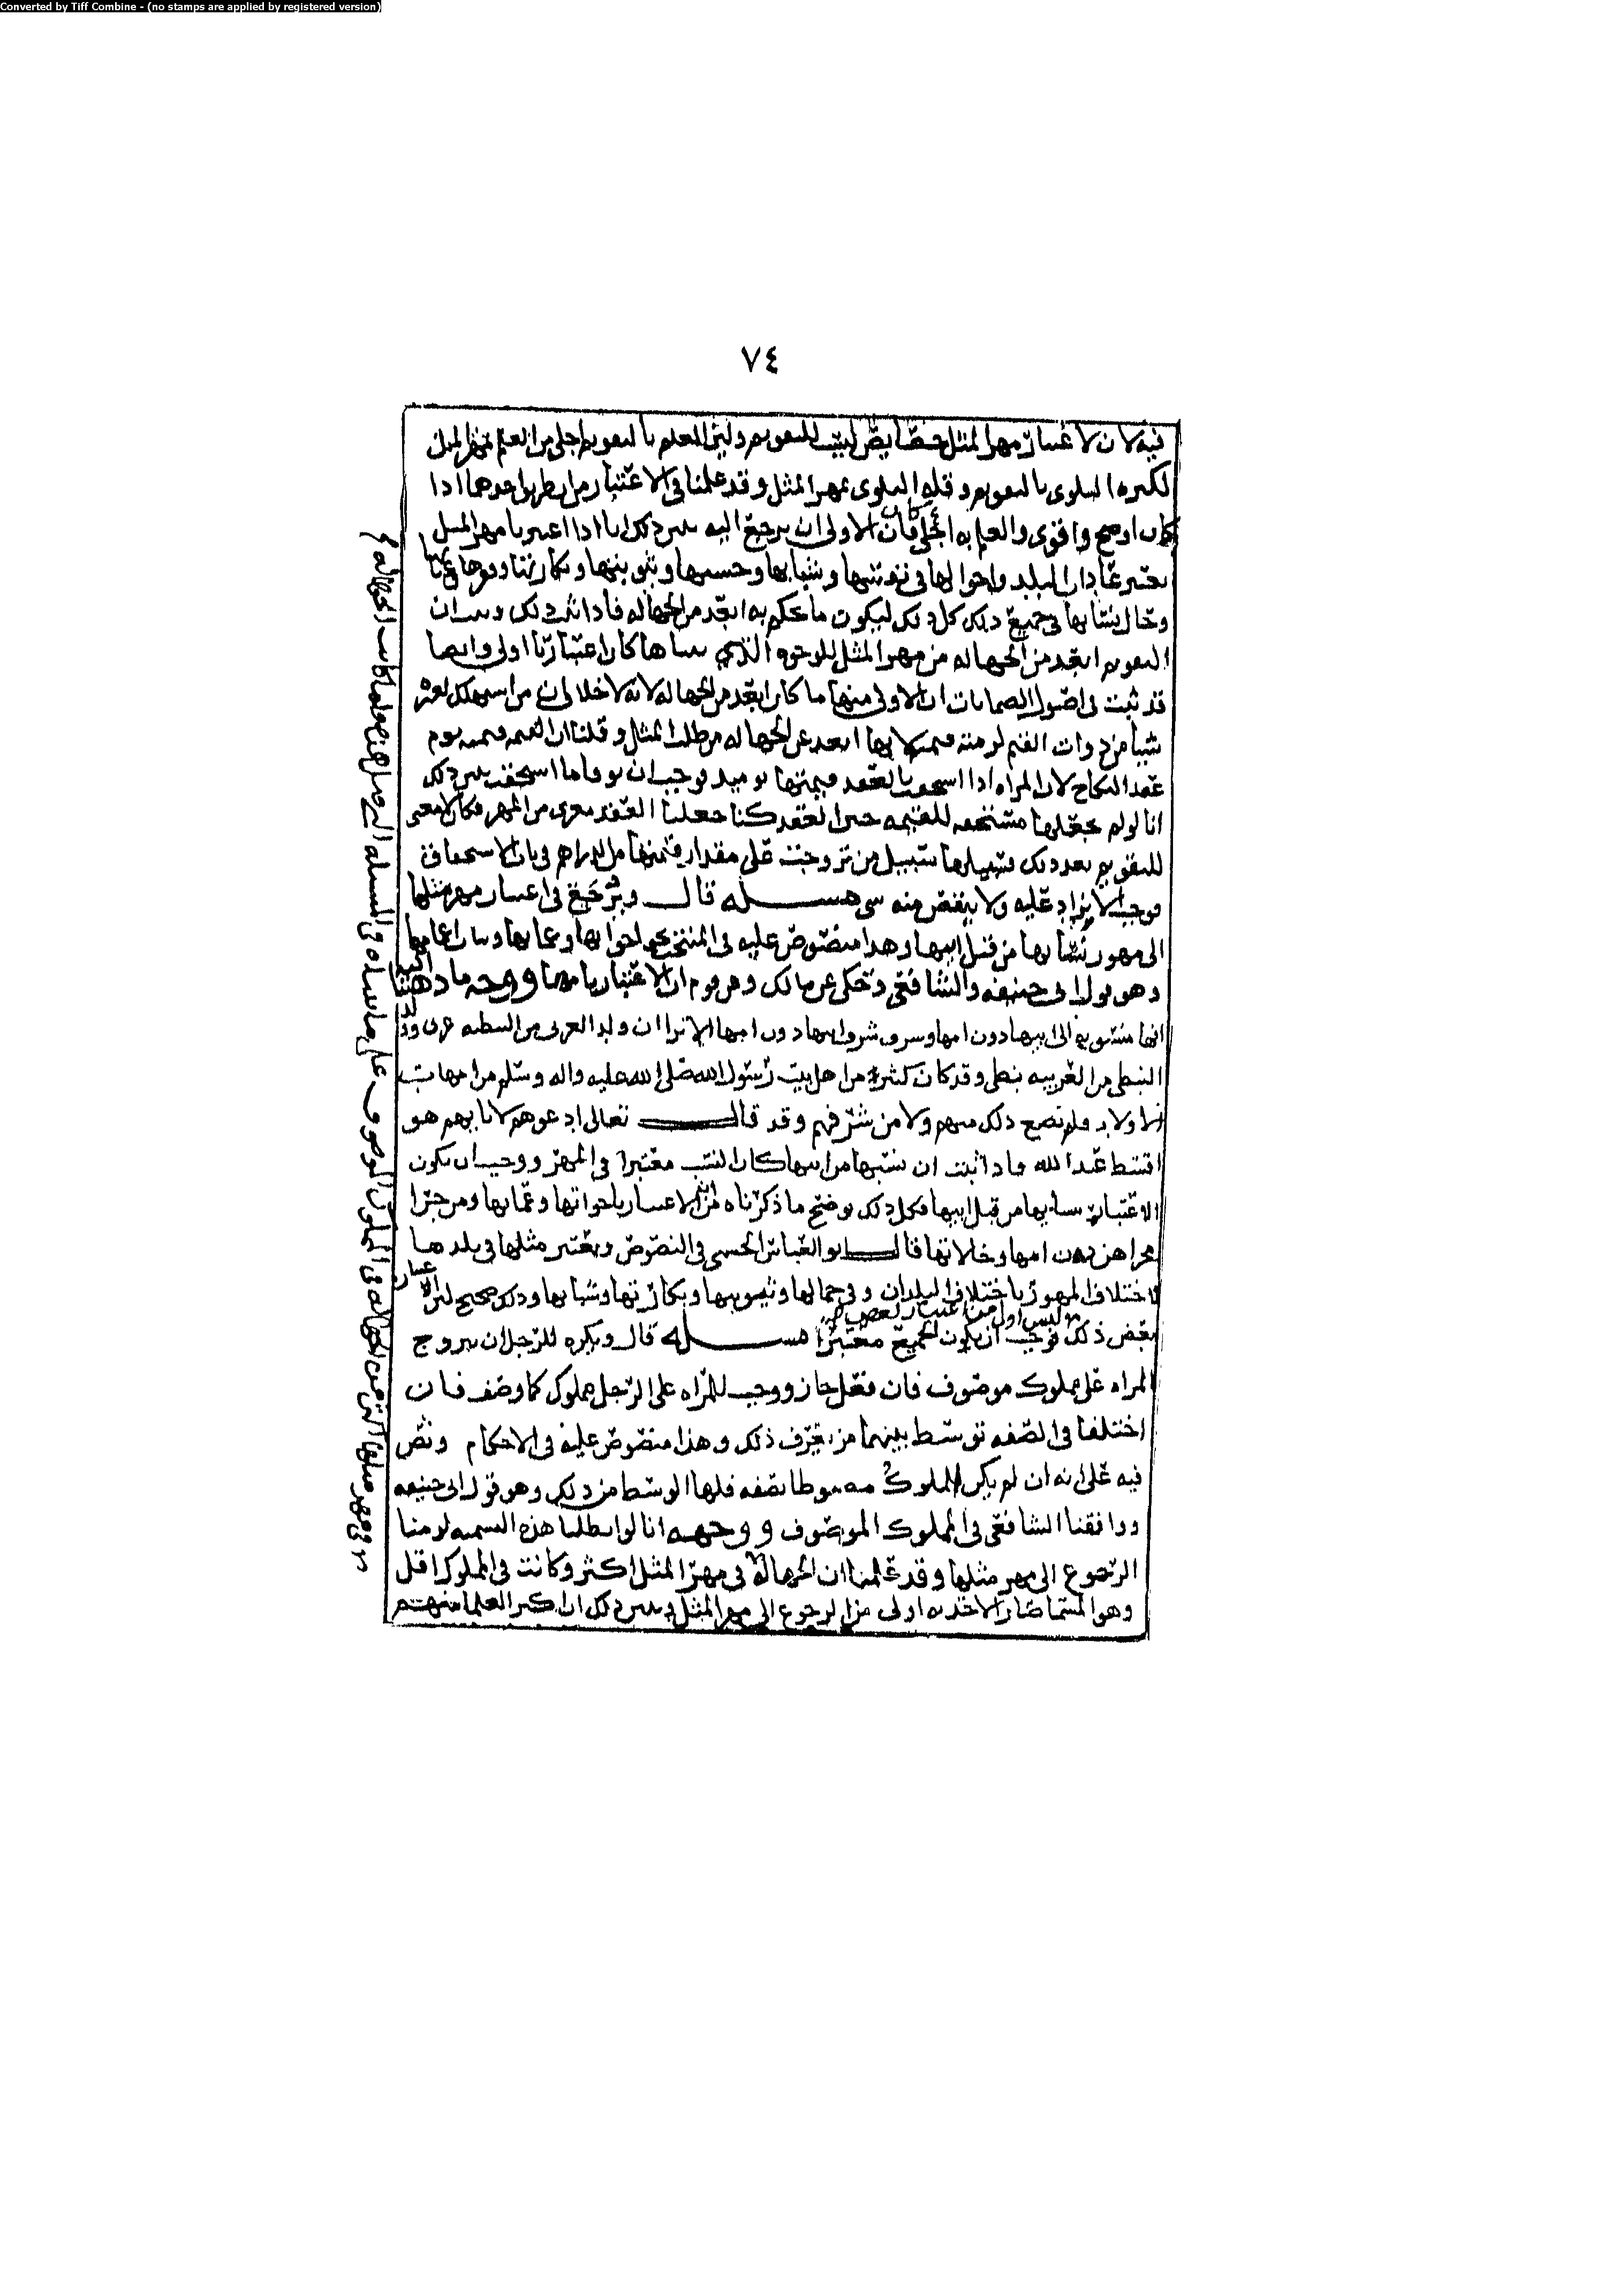 Converted by Tiff Combine - (no stamps are applied by registered version)
٧٤
فيه لان لاعتبار مهر المثل خصايص ليست للتقويم وليس العلم بالتقويم اجلى من العلم بمهر المثل
لكثره البلوى بالتقويم وقله البلوى بمهر المثل وقد علمنا في الاعتبار من طريق احدهما اذا
كان اوضح واقوى والعلم به اجلى كان الاولى ان يرجع اليه يبين ذلك انا اذا اعتبرنا مهر المثل
نعتبر عادات البلد واحوالها في وشبابها وحسنها وثيوبتها وبكارتها
وحال نسايها في جميع ذلك كل ذلك ليكون ما نحكم به ابعد من الجهاله فاذا ثبت ذلك وبان ان
التقويم ابعد من الجهاله من مهر المثل للوجوه الذي بيناها كان اعتبارنا اولى وايضا
قد ثبت في اصول الضمانات ان الاولى منها ما كان ابعد من الجهاله لانه لا خلاف ان من استهلك لغيره
شيا من ذوات القيم لزمته قيمته لانها ابعد عن الجهاله من طلب المثل وقلنا ان القيمه قيمته يوم
عقد النكاح لان المراه اذا استحقت بالعقد قيمتها يوميد فوجب ان توفا ما استحقت يبين ذلك
انا لو لم نجعلها مستحقه للقيمه حين العقد كنا جعلنا العقد معرى من المهر فكان لا معنى
للتقويم بعد ذلك فسبيلها سبيل من تزوجت على مقدار قيمتها من الدراهم في باب الاستحقاق
فوجب الا يزاد عليه ولا ينقص منه شي مسله قال ويرجع في اعتبار مهر مثلها
الى مهور نسايها من قبل ابيها وهذا منصوص عليه في المنتخب نحو اخواتها وعماتها وبنات اعمامها
وهو قول ابي حنيفه والشافعي وحكى عن مالك وغيره ان الاعتبار بامها ووجه ما ذهبنا اليه
انها منسوبه الى ابيها دون امها وشرف شرف ابيها دون امها الا ترا ان ولد العربي من النبطيه عربي وولد
النبطي من العربيه نبطي وقد كان كثير من اهل بيت رسول الله صلى الله عليه واله وسلم من امهات
اولاد ولم يضع ذلك منهم ولا من شرفهم وقد قال تعالى ادعوهم لابايهم هو
اقسط عند الله فاذا ثبت ان نسبها من ابيها كان النسب معتبرا في المهر ووجب ان يكون
الاعتبار بنسايها من قبل ابيها فكل ذلك يوضح ما ذكرناه من ان الاعتبار باخواتها وعماتها ومن جرا
مجراهن دون امها وخالاتها قال ابو العباس الحسني في النصوص ويعتبر مثلها في بلدها
لاختلاف المهور باختلاف البلدان وفي جمالها وثيوبتها وبكارتها وشبابها وذلك صحيح لان اعتبار
بعض ذلك ليس اولى من اعتبار بعض فوجب ان يكون الجميع معتبرا مسله قال ويكره للرجل ان يتزوج
المراه على مملوك موصوف فان فعل جاز ووجب للمراه على الرجل مملوك كما وصف فان
اختلفا في الصفه توسط بينهما من يعرف ذلك وهذا منصوص عليه في الاحكام ونص
فيه على انه ان لم يكن المملوك مضبوطا بصفه فلها الوسط من ذلك وهو قول ابي حنيفه
ووافقنا الشافعي في المملوك الموصوف ووجهه انا لو ابطلنا هذه التسميه لزمنا
الرجوع الى مهر مثلها وقد علمنا ان الجهاله في مهر المثل اكثر وكانت في المملوك اقل
وهو المسما صار الاخذ به اولى من الرجوع الى مهر المثل يبين ذلك ان اكثر العلما